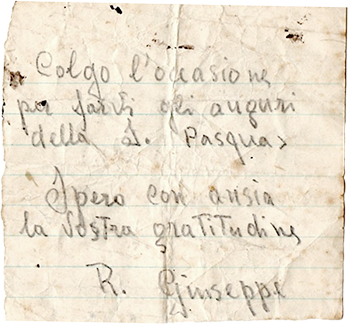 Colgo l'occasione
per farvi gli auguri
della S. Pasqua
Spero con ansia
la vostra gratitudine
R. Giuseppe